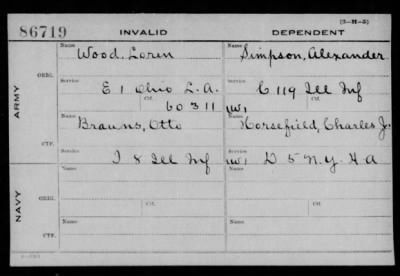 (3-H-5)
86719 INVALID DEPENDENT
Name Wood, Loren Name Simpson, Alexander
ORIG.
Service Service
E 1 Ohio L.A. C 119 Ill Inf
Ctf. 60311 Ctf.
ARMY
Name Brauns, Otto Name Horsefield, Charles J.
CTF.
Service Service
I 8 Ill Inf D 5 N.Y. H A
Name Name
ORIG.
Service Ctf. Service Ctf.
NAVY
Name Name
CTF.
Service Service